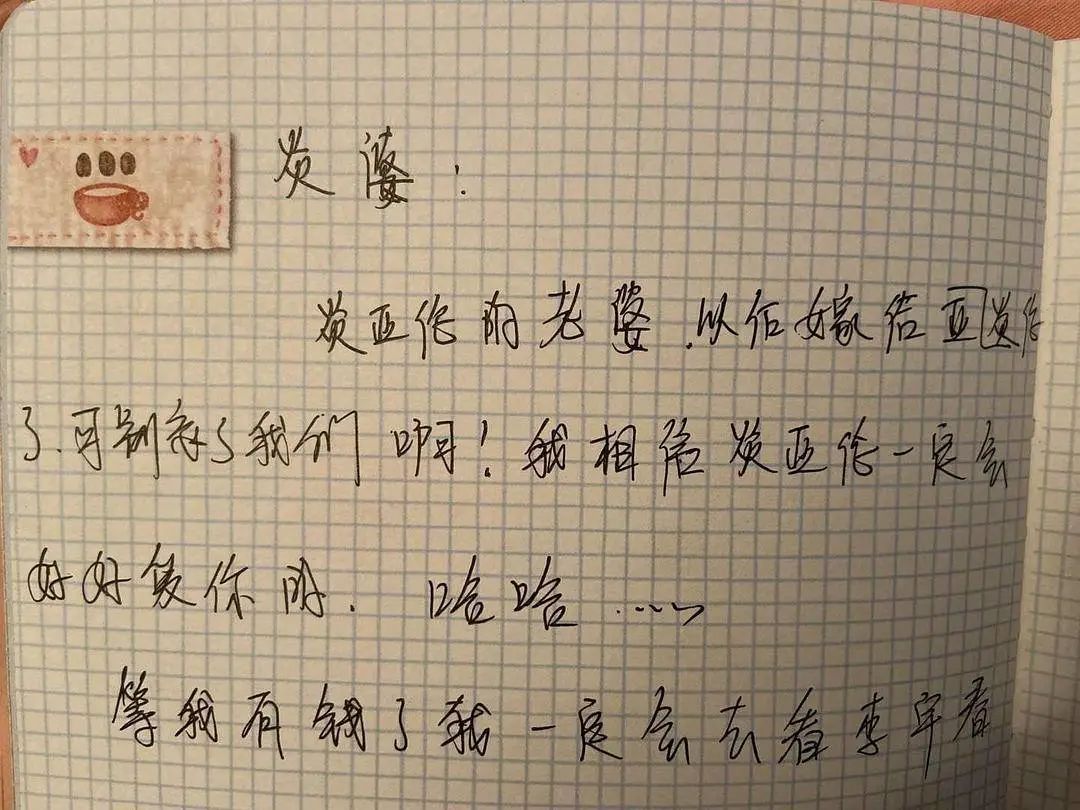 炎婆:
炎亚伦的老婆.以后嫁给亚炎伦
了.可别忘了我们啊!我相信炎亚伦一定会
好好爱你的. 哈哈......
等我有钱了我一定会去看李宇春